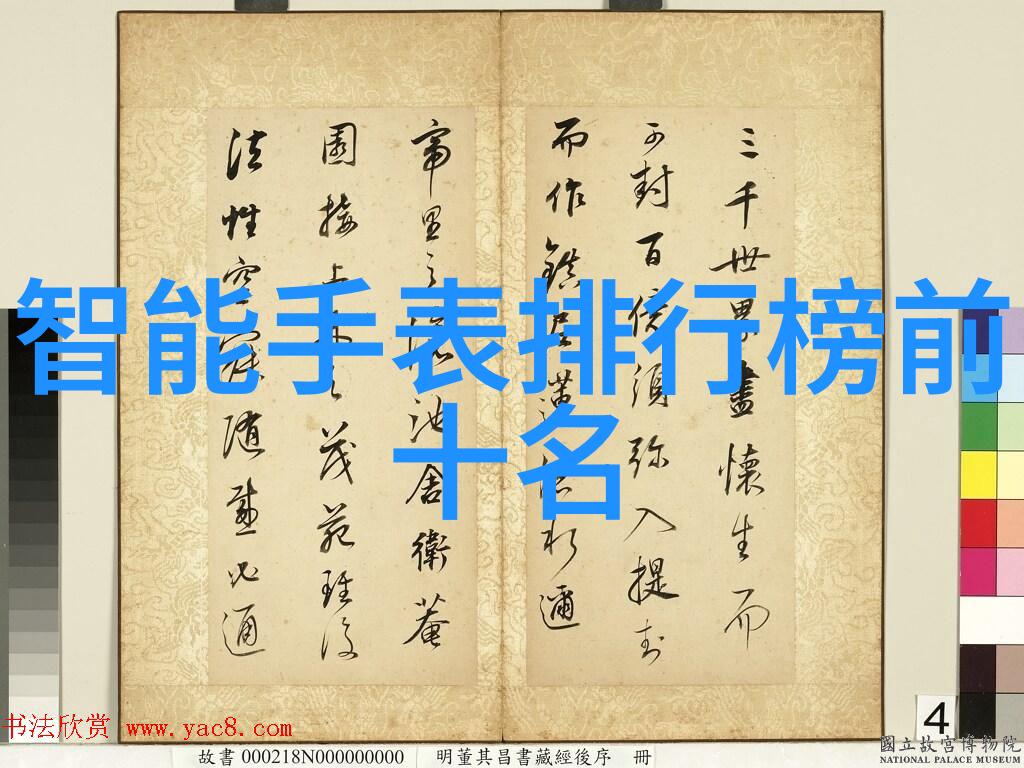 智能手表排行榜前
十名
三千世界盡懷生而
可封百億須弥入提封
而作鎮邇
里之池舍衛菴
園接上之茂苑
法性空隨感必通
书法欣赏 www.yac8.com
故書 000218N000000000 明董其昌書藏經後序 冊
4
國立故宮博物院
NATIONAL PALACE MUSEUM